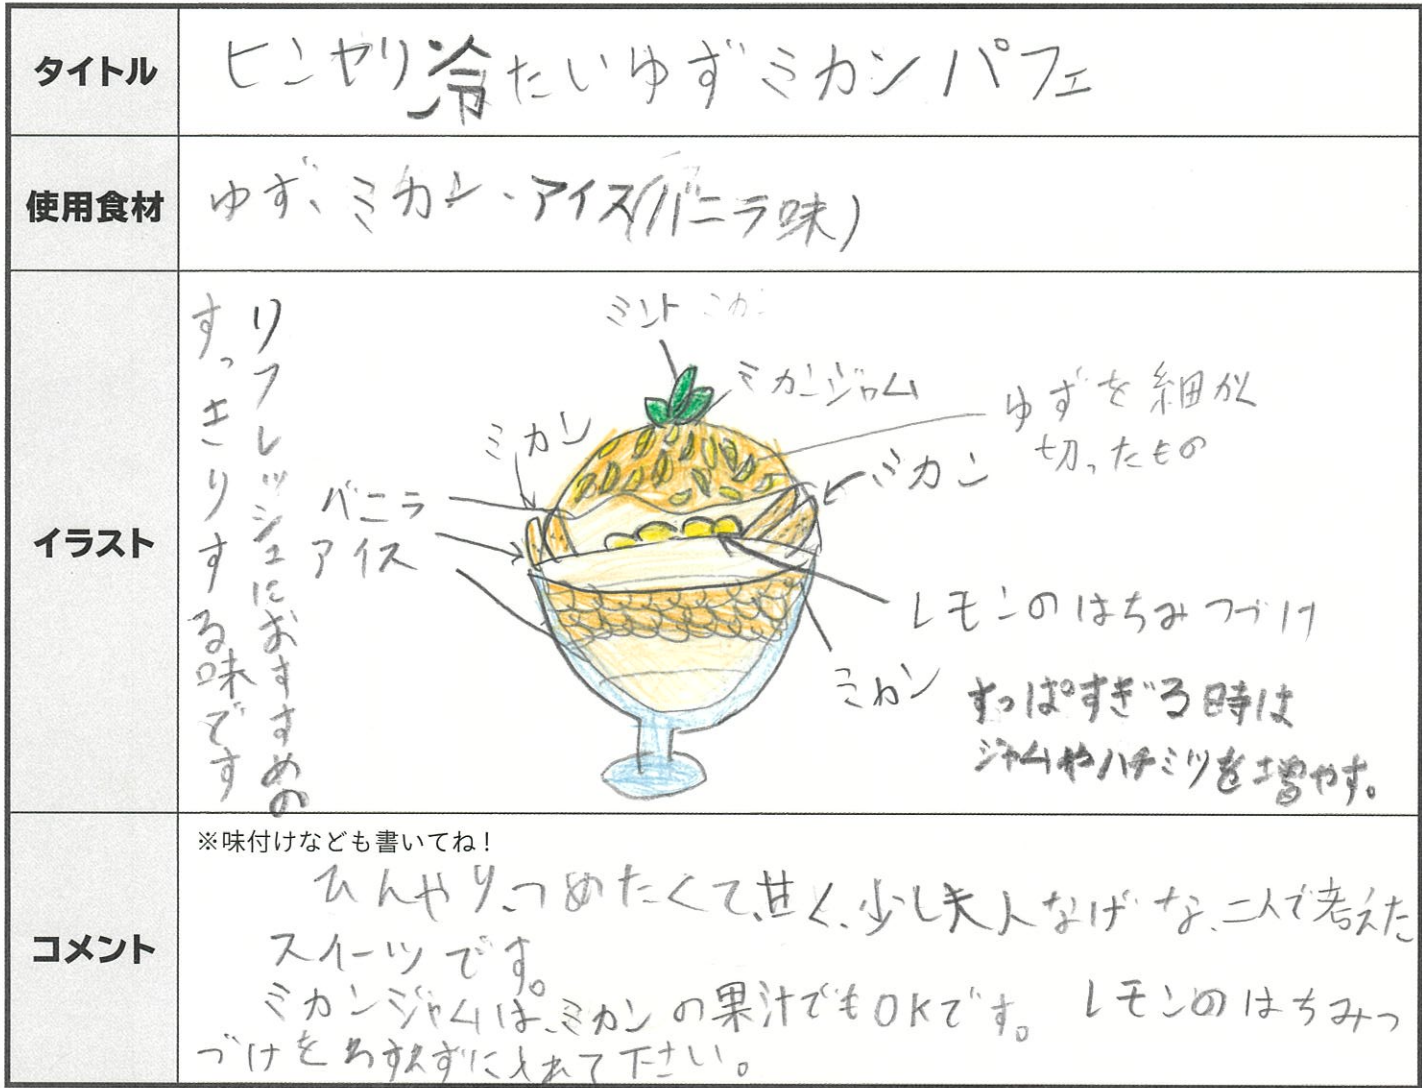 タイトル
ヒンヤリ冷たいゆずミカンパフェ
使用食材
ゆず、ミカン、アイス(バニラ味)
イラスト
リフレッシュにおすすめの
すっきりする味です
ミント
ミカンジャム
ゆずを細かく
切ったもの
ミカン
ミカン
バニラ
アイス
レモンのはちみつづけ
ミカン
すっぱすぎる時は
ジャムやハチミツを増やす。
コメント
※味付けなども書いてね!
ひんやり、つめたくて、甘く、少し大人なげな、二人で考えた
スイーツです。
ミカンジャムは、ミカンの果汁でもOKです。 レモンのはちみつ
づけをわすれずに入れて下さい。